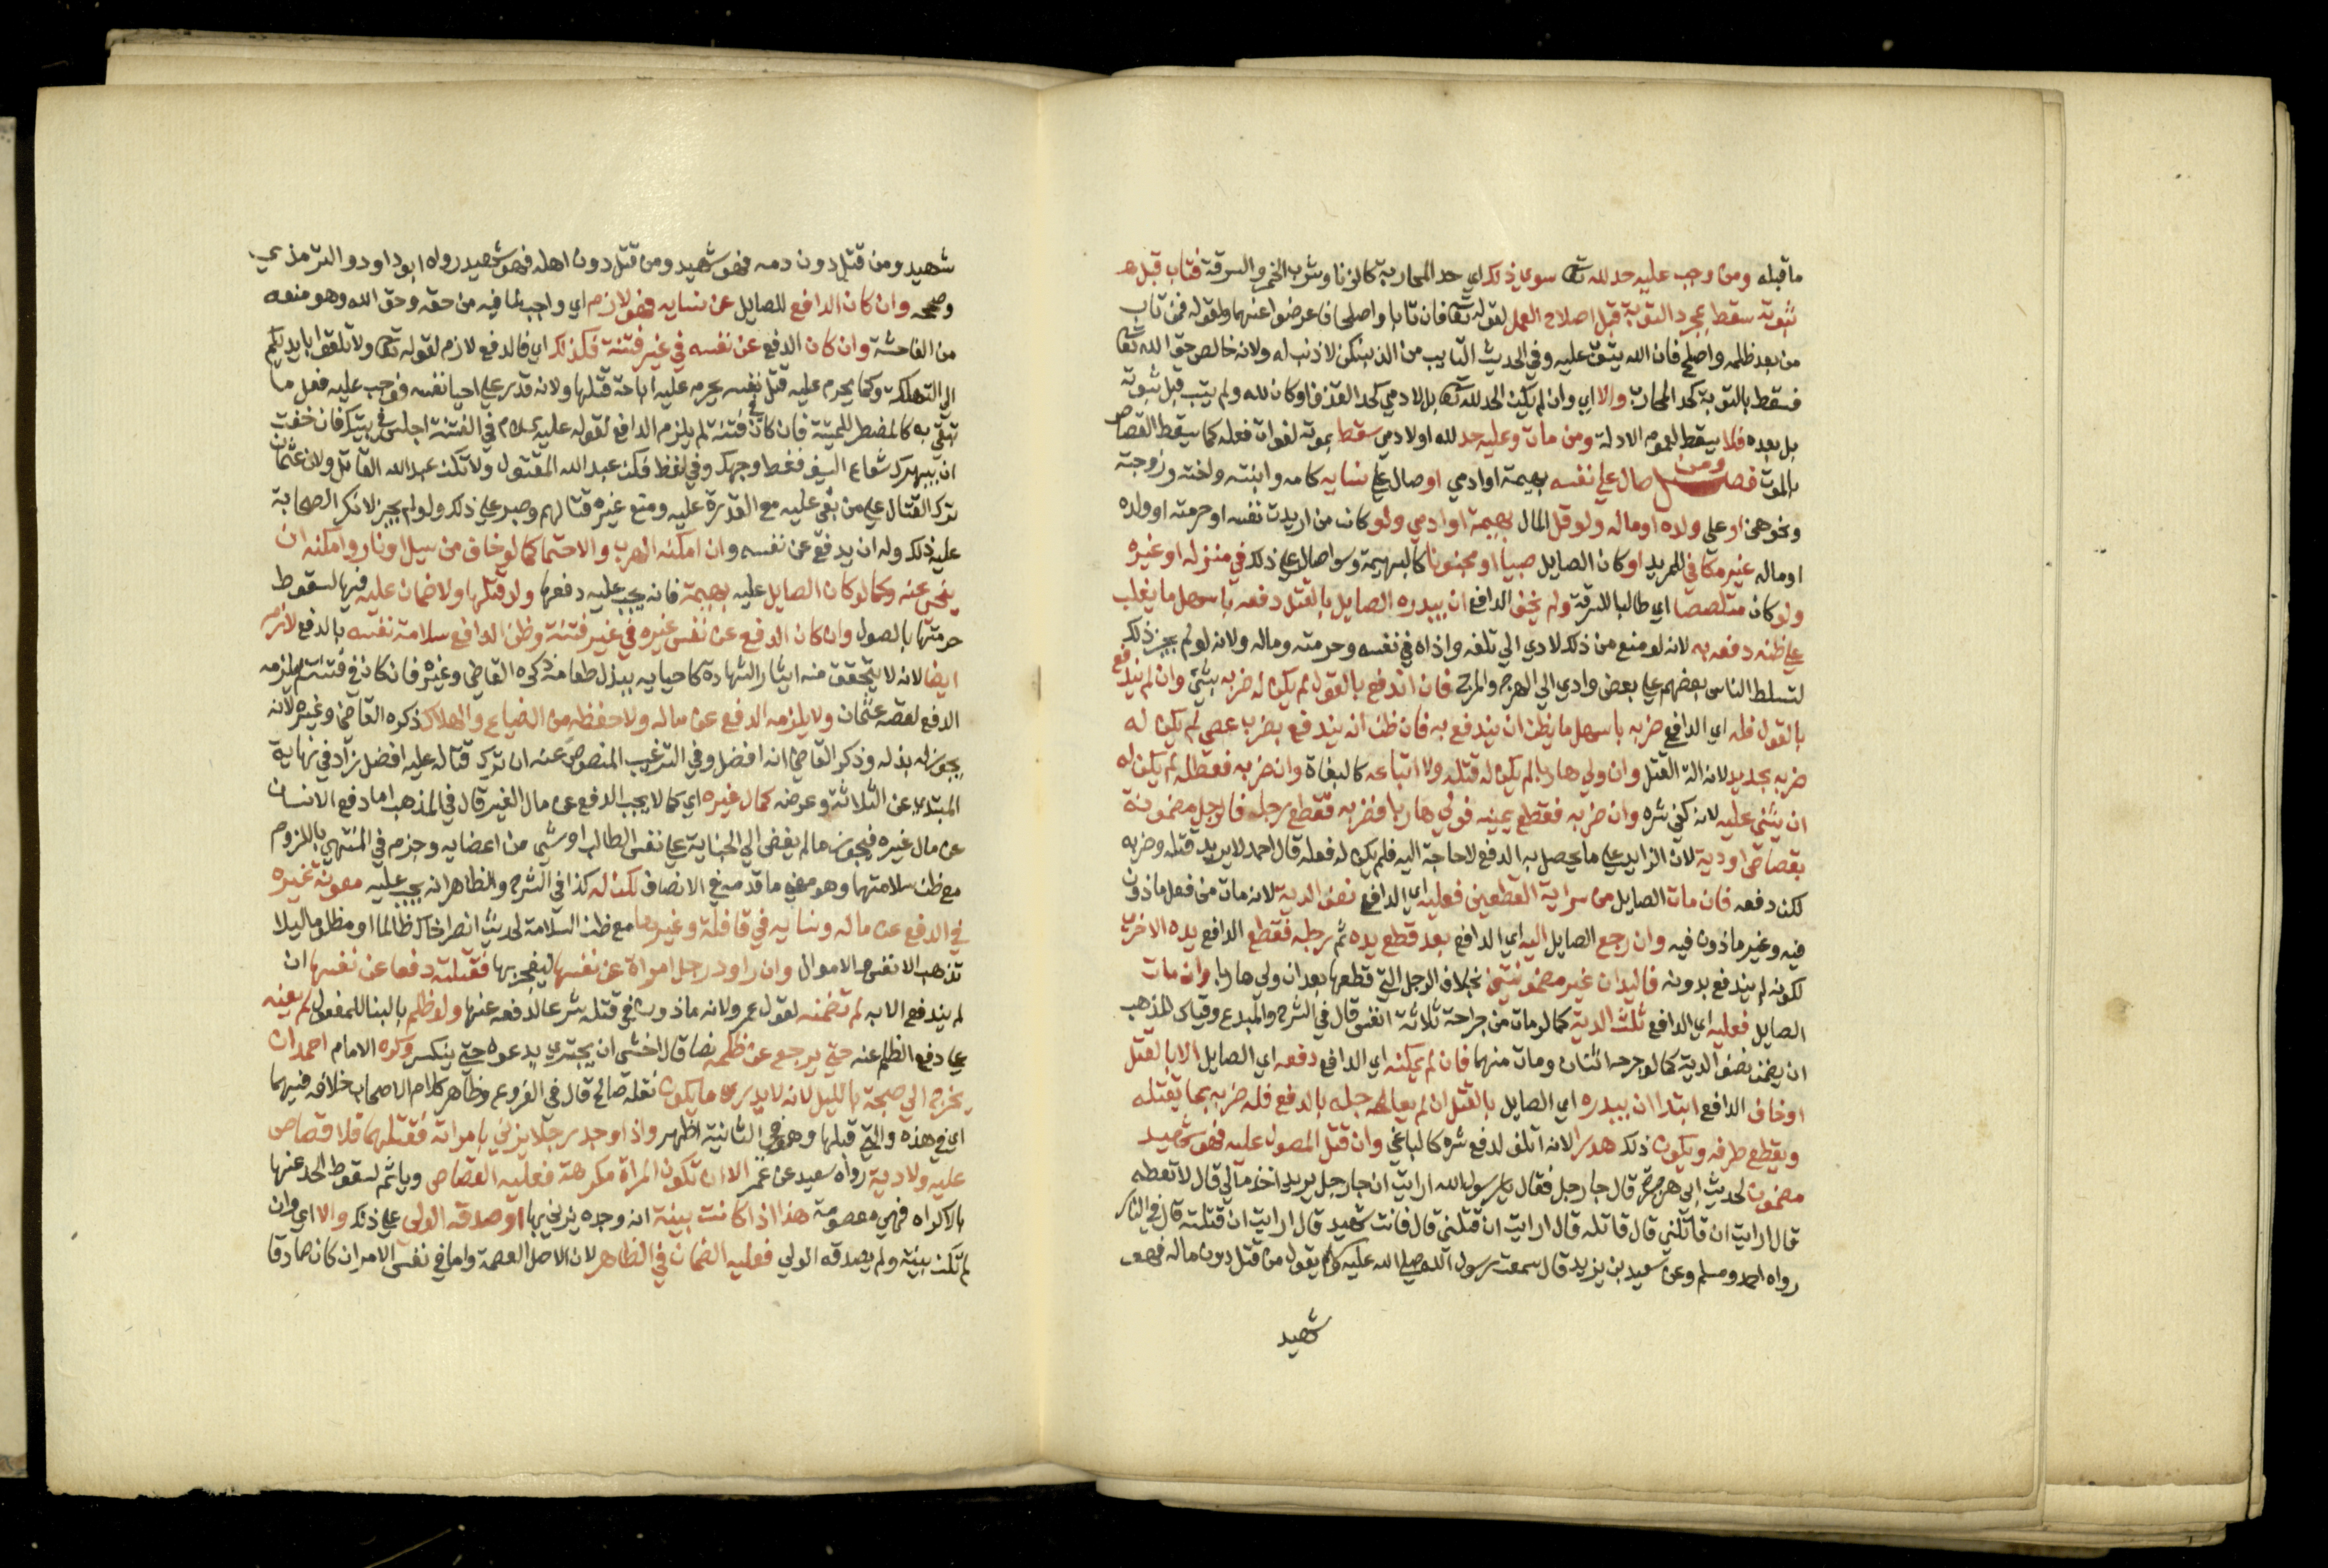 ما قبله ومن وجب عليه حد لله تعا سوى ذلك اي حد المحاربة كالزنا وشرب الخمر والسرقة فتاب قبل
ثبوته سقط بمجرد التوبة قبل اصلاح العمل لقوله تعا فان تابا واصلحا فاعرضوا عنهما ولقوله فمن تاب
من بعد ظلمه واصلح فان الله يتوب عليه وفي الحديث التايب من الذنب كمن لا ذنب له ولانه خالص حق الله تعا
فسقط بالتوبة كحد المحارب والا اي وان لم يكن الحد لله تعا بل لادمي كحد القذف او كان لله ولم يتب قبل ثبوته
بل بعده فلا يسقط لعموم الادلة ومن مات وعليه حد لله او لادمي سقط بموته لفوات فعله كما يسقط القصاص
بالموت فصل ومن صال على نفسه بهيمة او ادمي او صال على نسايه كامه وابنته واخته وزوجته
ونحوهن او على ولده او ماله ولو قل المال بهيمة او ادمي ولو كان من اريدت نفسه او حرمته او ولده
او ماله غير مكافي للمريد او كان الصايل صبيا او مجنونا كالبهيمة وسوا صال على ذلك في منزله او غيره
ولو كان متلصصا اي طالبا للسرقة ولم يخف الدافع ان يبدره الصايل بالقتل دفعه باسهل ما يغلب
على ظنه دفعه به لانه لو منع من ذلك لادي الى تلفه واذاه في نفسه وحرمته وماله ولانه لو لم يجز ذلك
لتسلط الناس بعضهم على بعض وادي الى الهرج والمرج فان اندفع بالقول لم يكن له ضربه بشي وان لم يندفع
بالقول فله اي الدافع ضربه باسهل ما يظن ان يندفع به فان ظن ان يندفع بضرب عصي لم يكن له
ضربه بحديد لانه الة القتل وان ولى هاربا لم يكن له قتله ولا اتباعه كالبغاة وان ضربه فعطله لم يكن له
ان يثني عليه لانه كفي شره وان ضربه فقطع يمينه فولى هاربا فضربه فقطع رجله فالرجل مضمونة
بقصاص او دية لان الزايد على ما يحصل به الدفع لا حاجة اليه فلم يكن له فعله قال احمد لا يريد قتله وضربه
لكن دفعه فان مات الصايل من سراية القطعين فعليه اي الدافع نصف الدية لانه مات من فعل ماذون
فيه وغير ماذون فيه وان رجع الصايل اليه اي الدافع بعد قطع يده ثم رجله فقطع الدافع يده الاخرى
لكونه لم يندفع بدونه فاليدان غير مضمونتين بخلاف الرجل التي قطعها بعد ان ولى هاربا وان مات
الصايل فعليه اي الدافع ثلث الدية كما لو مات من جراحة ثلاثة انفس قال في الشرح والمبدع وقياس المذهب
ان يضمن نصف الدية كما لو جرحه اثنان ومات منهما فان لم يمكنه اي الدافع دفعه اي الصايل الا بالقتل
او خاف الدافع ابتدا ان يبدره اي الصايل بالقتل ان لم يعاجله بالدفع فله ضربه بما يقتله
ويقطع طرفه ويكون ذلك هدرا لانه اتلف لدفع شره كالباغي وان قتل المصول عليه فهو شهيد
مضمون لحديث ابي هريرة قال جا رجل فقال يا رسول الله ارايت ان جا رجل يريد اخذ مالي قال لا تعطه
قال ارايت ان قاتلني قال قاتله قال ارايت ان قتلني قال فانت شهيد قال ارايت ان قتلته قال في النار
رواه احمد ومسلم وعن سعيد بن يزيد قال سمعت رسول الله صلى الله عليه وسلم يقول من قتل دون ماله فهو
شهيد
شهيد ومن قتل دون دمه فهو شهيد ومن قتل دون اهله فهو شهيد رواه ابو داود والترمذي
وصححه وان كان الدافع للصايل عن نسايه فهو لازم اي واجب لما فيه من حقه وحق الله وهو منعه
من الفاحشة وان كان الدفع عن نفسه في غير فتنة فكذلك اي فالدفع لازم لقوله تعا ولا تلقوا بايديكم
الى التهلكة وكما يحرم عليه قتل نفسه يحرم عليه اباحة قتلها ولانه قدر على احيا نفسه فوجب عليه فعل ما
تبقى به كالمضطر للميتة فان كان في فتنة لم يلزم الدافع لقوله عليه السلام في الفتنة اجلس في بيتك فان خفت
ان يبهرك شعاع السيف فغط وجهك وفي لفظ فكن عبد الله المقتول ولا تكن عبد الله القاتل ولان عثمان
ترك القتال على من بغى عليه مع القدرة عليه ومنع غيره قتالهم وصبر على ذلك ولو لم يجز لانكر الصحابة
عليه ذلك وله ان يدفع عن نفسه وان امكنه الهرب والاحتما كما لو خاف من سيل او نار وامكنه ان
يتنحى عنه وكما لو كان الصايل عليه بهيمة فانه يجب عليه دفعها ولو قتلها ولا ضمان عليه فيها لسقوط
حرمتها بالصول وان كان الدفع عن نفس غيره في غير فتنة وظن الدافع سلامة نفسه بالدفع لازم
ايضا لانه لا يتحقق منه ايثار الشهادة كاحيايه ببذل طعامه ذكره القاضي وغيره فان كان في فتنة لم يلزمه
الدفع لقصة عثمان ولا يلزمه الدفع عن ماله ولا حفظه من الضياع والهلاك ذكره القاضي وغيره لانه
يجوز له بذله وذكر القاضي انه افضل وفي الترغيب المنصوص عنه ان ترك قتاله عليه افضل زاد في نهاية
المبتدي عن الثلاثة وعرضه كمال غيره اي كما لا يجب الدفع عن مال الغير قال في المذهب اما دفع الانسان
عن مال غيره فيجوز ما لم يفض الى الجناية على نفس الطالب او شي من اعضايه وجزم في المنتهي باللزوم
مع ظن سلامتهما وهو معنى ما قدمه في الانصاف لكن له كذا في الشرح والظاهر انه يجب عليه معونة غيره
في الدفع عن ماله ونسايه في قافلة وغيرها مع ظن السلامة لحديث انصر اخاك ظالما او مظلوما ليلا
تذهب الانفس والاموال وان راود رجل امراة عن نفسها ليفجر بها فقتلته دفعا عن نفسها ان
لم يندفع الا به لم تضمنه لقول عمر ولانه ماذون في قتله شرعا لدفعه عنها ولو ظلم بالبنا للمفعول لم يعنه
على دفع الظلم عنه حتى يرجع عن ظلمه نصا قال اخشى ان يجتري يدعوه حتى ينكسر وكره الامام احمد ان
يخرج الى صيحة بالليل لانه لا يدري ما يكون نقله صالح قال في الفروع وظاهر كلام الاصحاب خلافه فيهما
اي في هذه والتي قبلها وهو في الثانية اظهر واذا وجد رجلا يزني بامراته فقتلهما فلا قصاص
عليه ولا دية رواه سعيد عن عمر الا ان تكون المراة مكرهة فعليه القصاص وياثم لسقوط الحد عنها
بالاكراه فهي معصومة هذا اذا كانت بينة انه وجده يزني بها او صدقه الولي على ذلك والا اي وان
لم تكن بينة ولم يصدقه الولي فعليه الضمان في الظاهر لان الاصل العصمة واما في نفس الامر ان كان صادقا